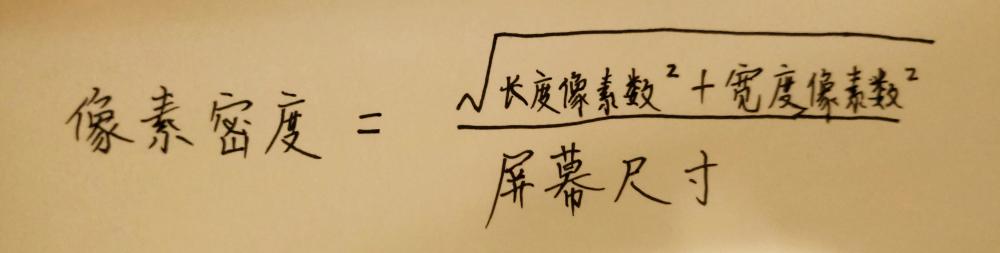 像素密度 = √长度像素数² + 宽度像素数²
屏幕尺寸